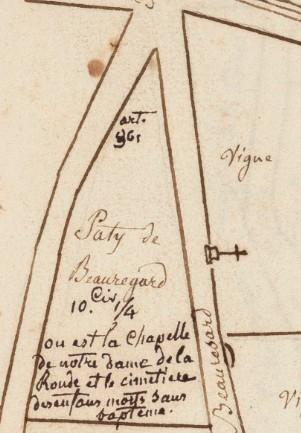 art.
961
Vigne
Paty de
Beauregard
10. Civ. 1/4
ou est la Chapelle
de notre dame de la
Ronde et le cimetiere
desenfans morts sans
baptême.
Beauregard
Vi